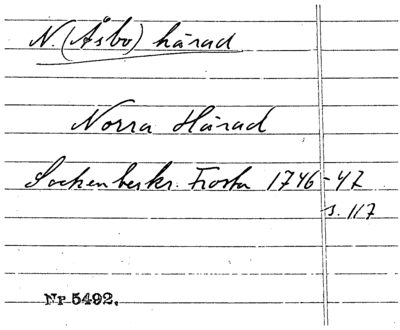 N. (Åsbo) härad
Norra Härad
Sockenbeskr. Frosta 1746-47
s. 117
Nr 5492.